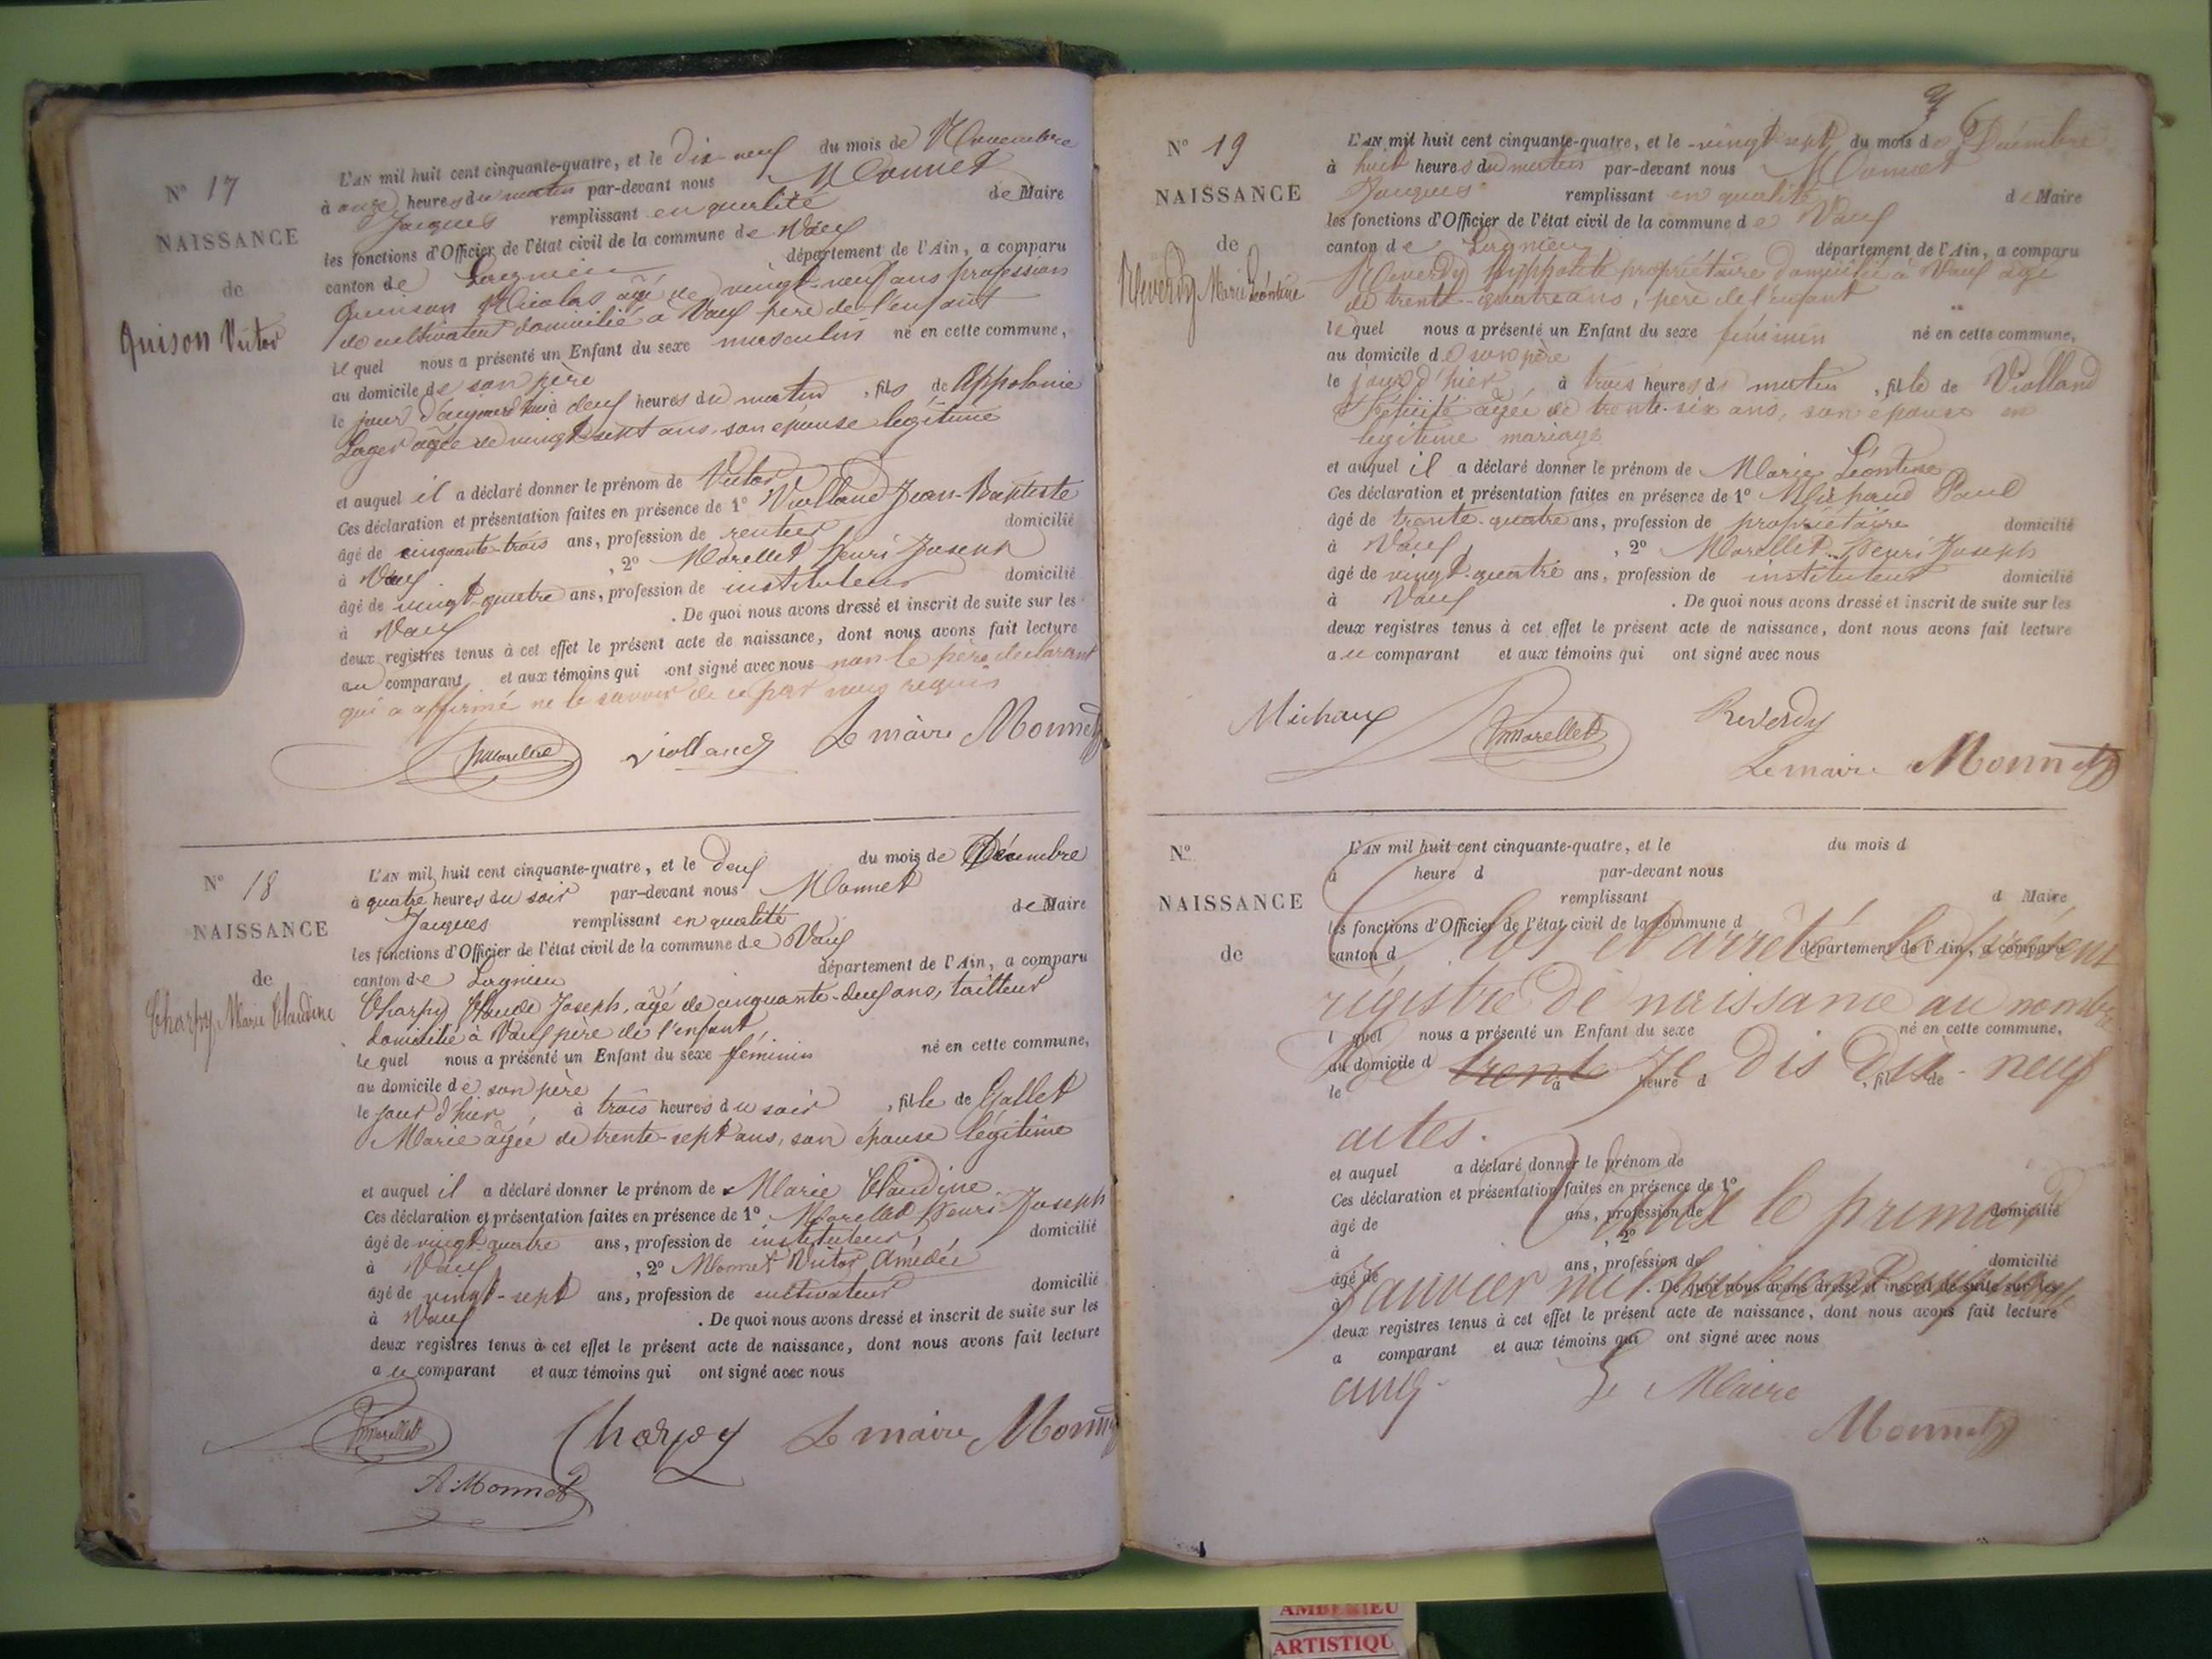 N° 17
NAISSANCE
de
Quison Victor
L'AN mil huit cent cinquante-quatre, et le dix-neuf du mois de Novembre
à onze heures du matin par-devant nous Monnet
Jacques remplissant en qualité de Maire
les fonctions d'Officier de l'état civil de la commune de Vaux
canton de Lagnieu département de l'Ain, a comparu
Quinson Nicolas âgé de vingt-neuf ans profession
de cultivateur domicilié à Vaux père de l'enfant
lequel nous a présenté un Enfant du sexe masculin né en cette commune,
au domicile de son père
le jour d'aujourd'hui à deux heures du matin, fils de Appolonie
Lager âgée de vingt sept ans, son épouse légitime
et auquel il a déclaré donner le prénom de Victor
Ces déclaration et présentation faites en présence de 1° Violland Jean-Baptiste
âgé de cinquante-trois ans, profession de rentier domicilié
à Vaux, 2° Morellet Henri Joseph
âgé de vingt-quatre ans, profession de instituteur domicilié
à Vaux. De quoi nous avons dressé et inscrit de suite sur les
deux registres tenus à cet effet le présent acte de naissance, dont nous avons fait lecture
au comparant et aux témoins qui ont signé avec nous non le père déclarant
qui a affirmé ne le savoir de ce par nous requis
Morellet Violland Le maire Monnet
N° 18
NAISSANCE
de
Charpy Marie Claudine
L'AN mil huit cent cinquante-quatre, et le deux du mois de Décembre
à quatre heures du soir par-devant nous Monnet
Jacques remplissant en qualité de Maire
les fonctions d'Officier de l'état civil de la commune de Vaux
canton de Lagnieu département de l'Ain, a comparu
Charpy Claude Joseph, âgé de cinquante-deux ans, tailleur
domicilié à Vaux père de l'enfant,
lequel nous a présenté un Enfant du sexe féminin né en cette commune,
au domicile de son père
le jour d'hier, à trois heures du soir, fille de Gallet
Marie âgée de trente-sept ans, son épouse légitime
et auquel il a déclaré donner le prénom de Marie Claudine
Ces déclaration et présentation faites en présence de 1° Morellet Henri Joseph
âgé de vingt-quatre ans, profession de instituteur domicilié
à Vaux, 2° Monnet Victor Amédée
âgé de vingt-sept ans, profession de cultivateur domicilié
à Vaux. De quoi nous avons dressé et inscrit de suite sur les
deux registres tenus à cet effet le présent acte de naissance, dont nous avons fait lecture
au comparant et aux témoins qui ont signé avec nous
Morellet Charpy Le maire Monnet
A. Monnet
N° 19
NAISSANCE
de
Reverdy Marie Léontine
L'AN mil huit cent cinquante-quatre, et le vingt sept du mois de Décembre
à huit heures du matin par-devant nous Monnet
Jacques remplissant en qualité de Maire
les fonctions d'Officier de l'état civil de la commune de Vaux
canton de Lagnieu département de l'Ain, a comparu
Reverdy Hippolite propriétaire domicilié à Vaux âgé
de trente-quatre ans, père de l'enfant
lequel nous a présenté un Enfant du sexe féminin né en cette commune,
au domicile de son père
le jour d'hier à trois heures du matin, fille de Violland
Félicité âgée de trente-six ans, son épouse en
légitime mariage
et auquel il a déclaré donner le prénom de Marie Léontine
Ces déclaration et présentation faites en présence de 1° Michaud Paul
âgé de trente-quatre ans, profession de propriétaire domicilié
à Vaux, 2° Morellet Henri Joseph
âgé de vingt-quatre ans, profession de instituteur domicilié
à Vaux. De quoi nous avons dressé et inscrit de suite sur les
deux registres tenus à cet effet le présent acte de naissance, dont nous avons fait lecture
au comparant et aux témoins qui ont signé avec nous
Michaux Morellet Reverdy
Le maire Monnet
N°
NAISSANCE
de
L'AN mil huit cent cinquante-quatre, et le du mois d
à heure d par-devant nous
remplissant d Maire
les fonctions d'Officier de l'état civil de la commune d
canton d département de l'Ain, a comparu
Clos et arrêté le présent
registre de naissance au nombre
l quel nous a présenté un Enfant du sexe né en cette commune,
au domicile d
de trente je dis dix-neuf
le à heure d , fil de
actes.
et auquel a déclaré donner le prénom de
Ces déclaration et présentation faites en présence de 1°
Vaux le premier
âgé de ans, profession de domicilié
à , 2°
âgé de ans, profession de domicilié
Janvier mil huit cent cinquante
à . De quoi nous avons dressé et inscrit de suite sur les
deux registres tenus à cet effet le présent acte de naissance, dont nous avons fait lecture
a comparant et aux témoins qui ont signé avec nous
cinq. Le Maire
Monnet
AMBERIEU
ARTISTIQU